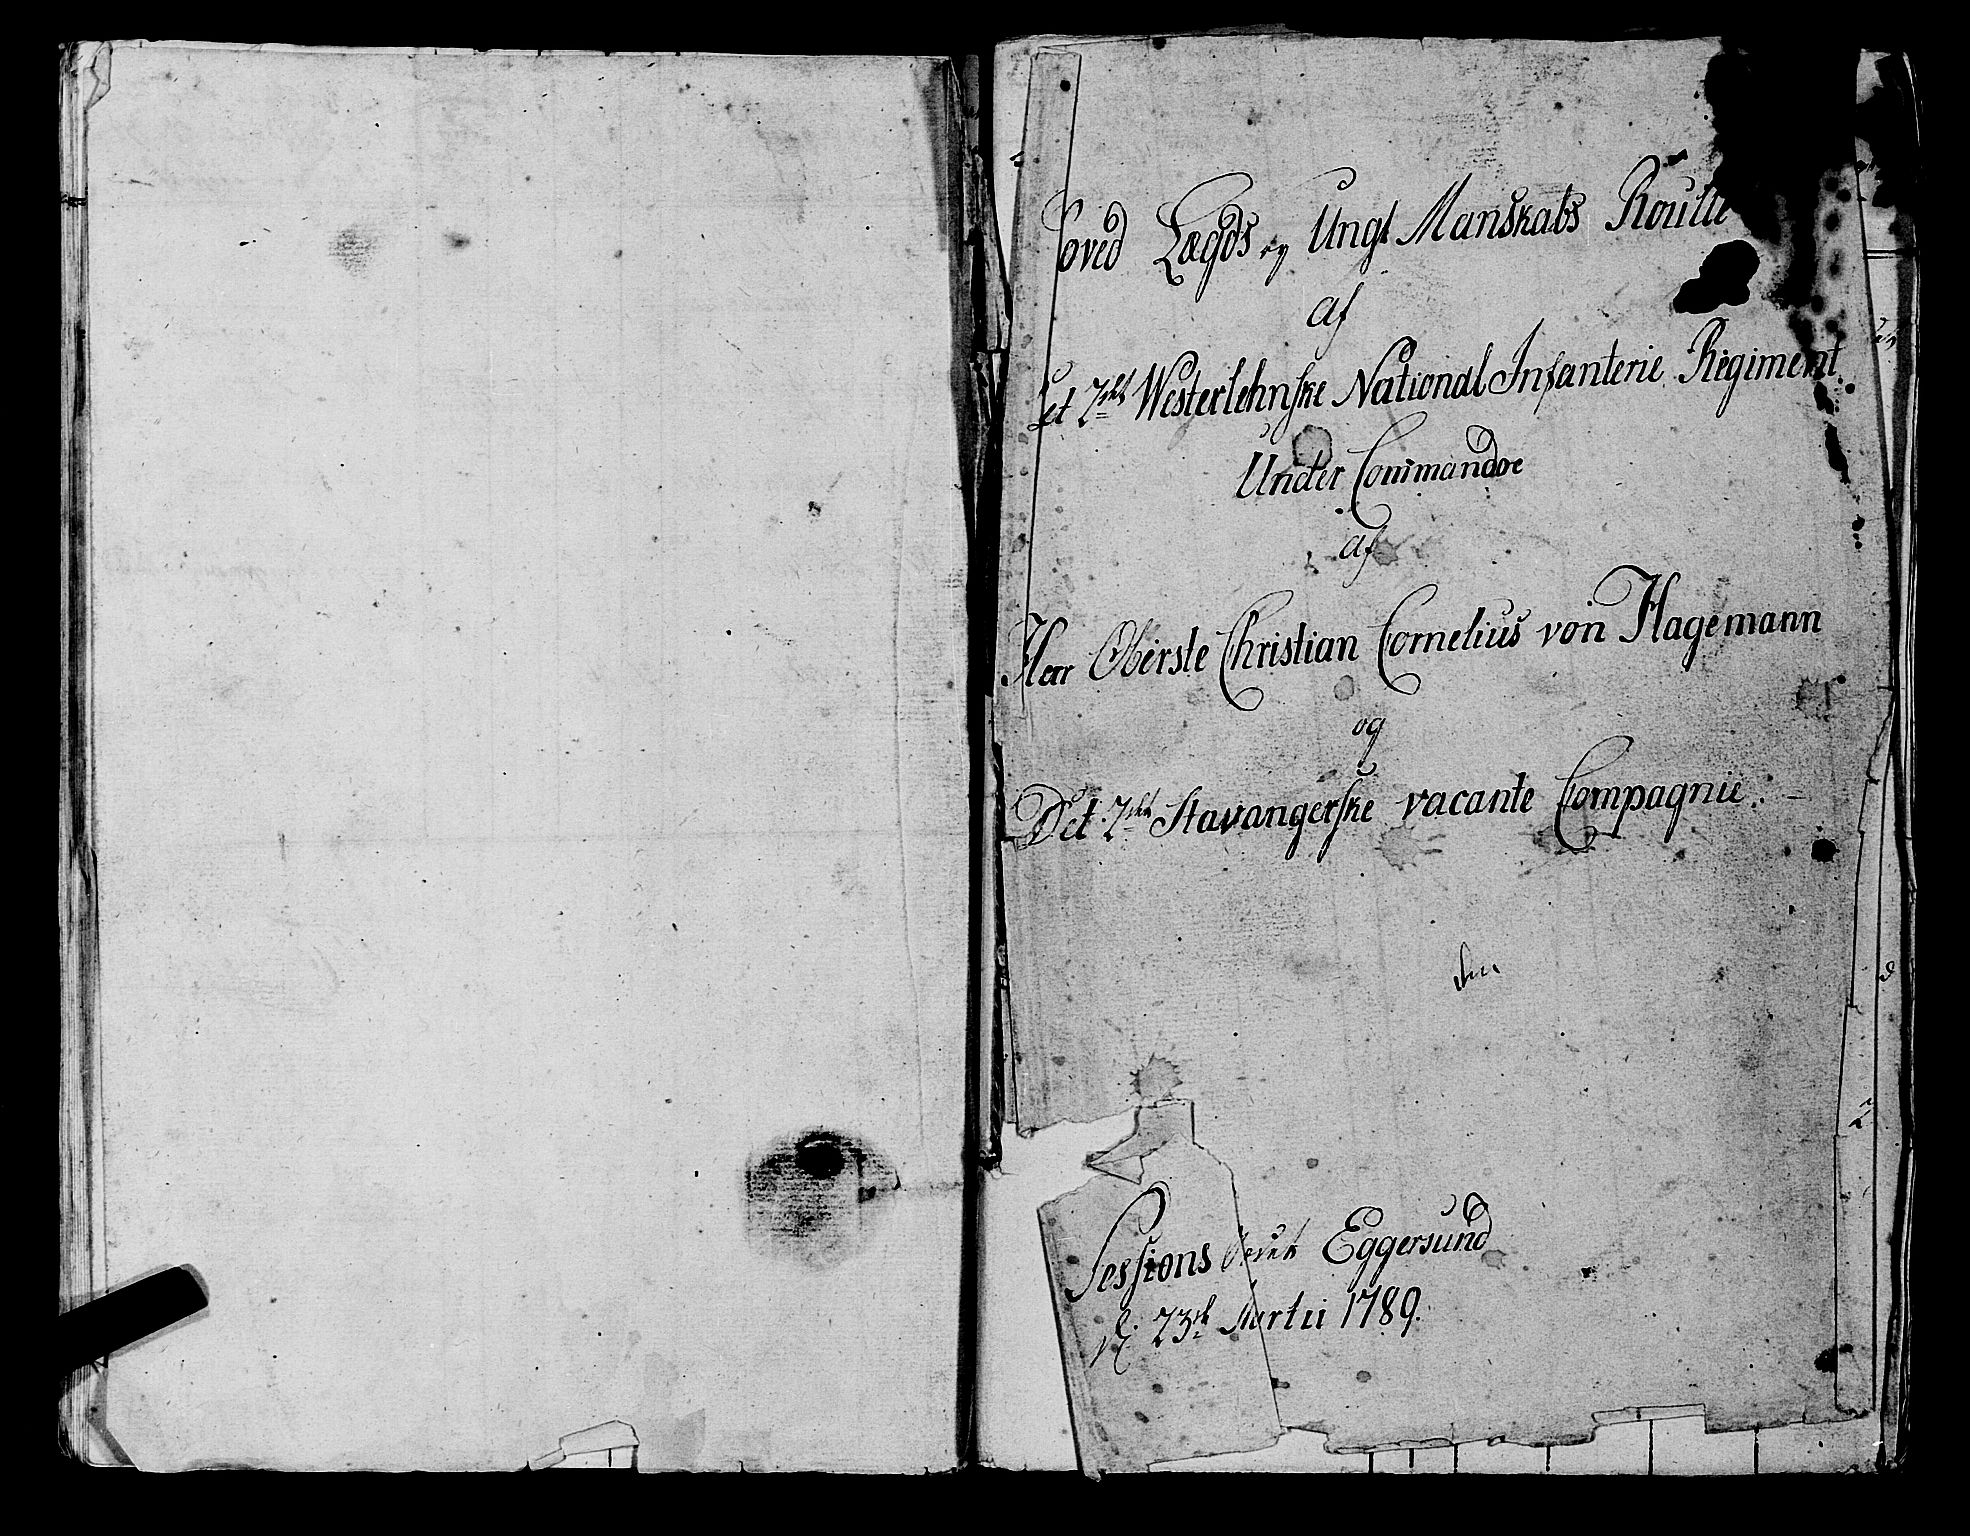 oved Lægds og Ungt Manskabs Roulle
af
et 2det Westerlehnske National Infanterie Regiment
Under Commandoe
af
Herr Oberste Christian Cornelius von Hagemann
og
Det 2det Stavangerske vacante Compagnie.
den
Sessions Eggersund
23de Martii 1789.